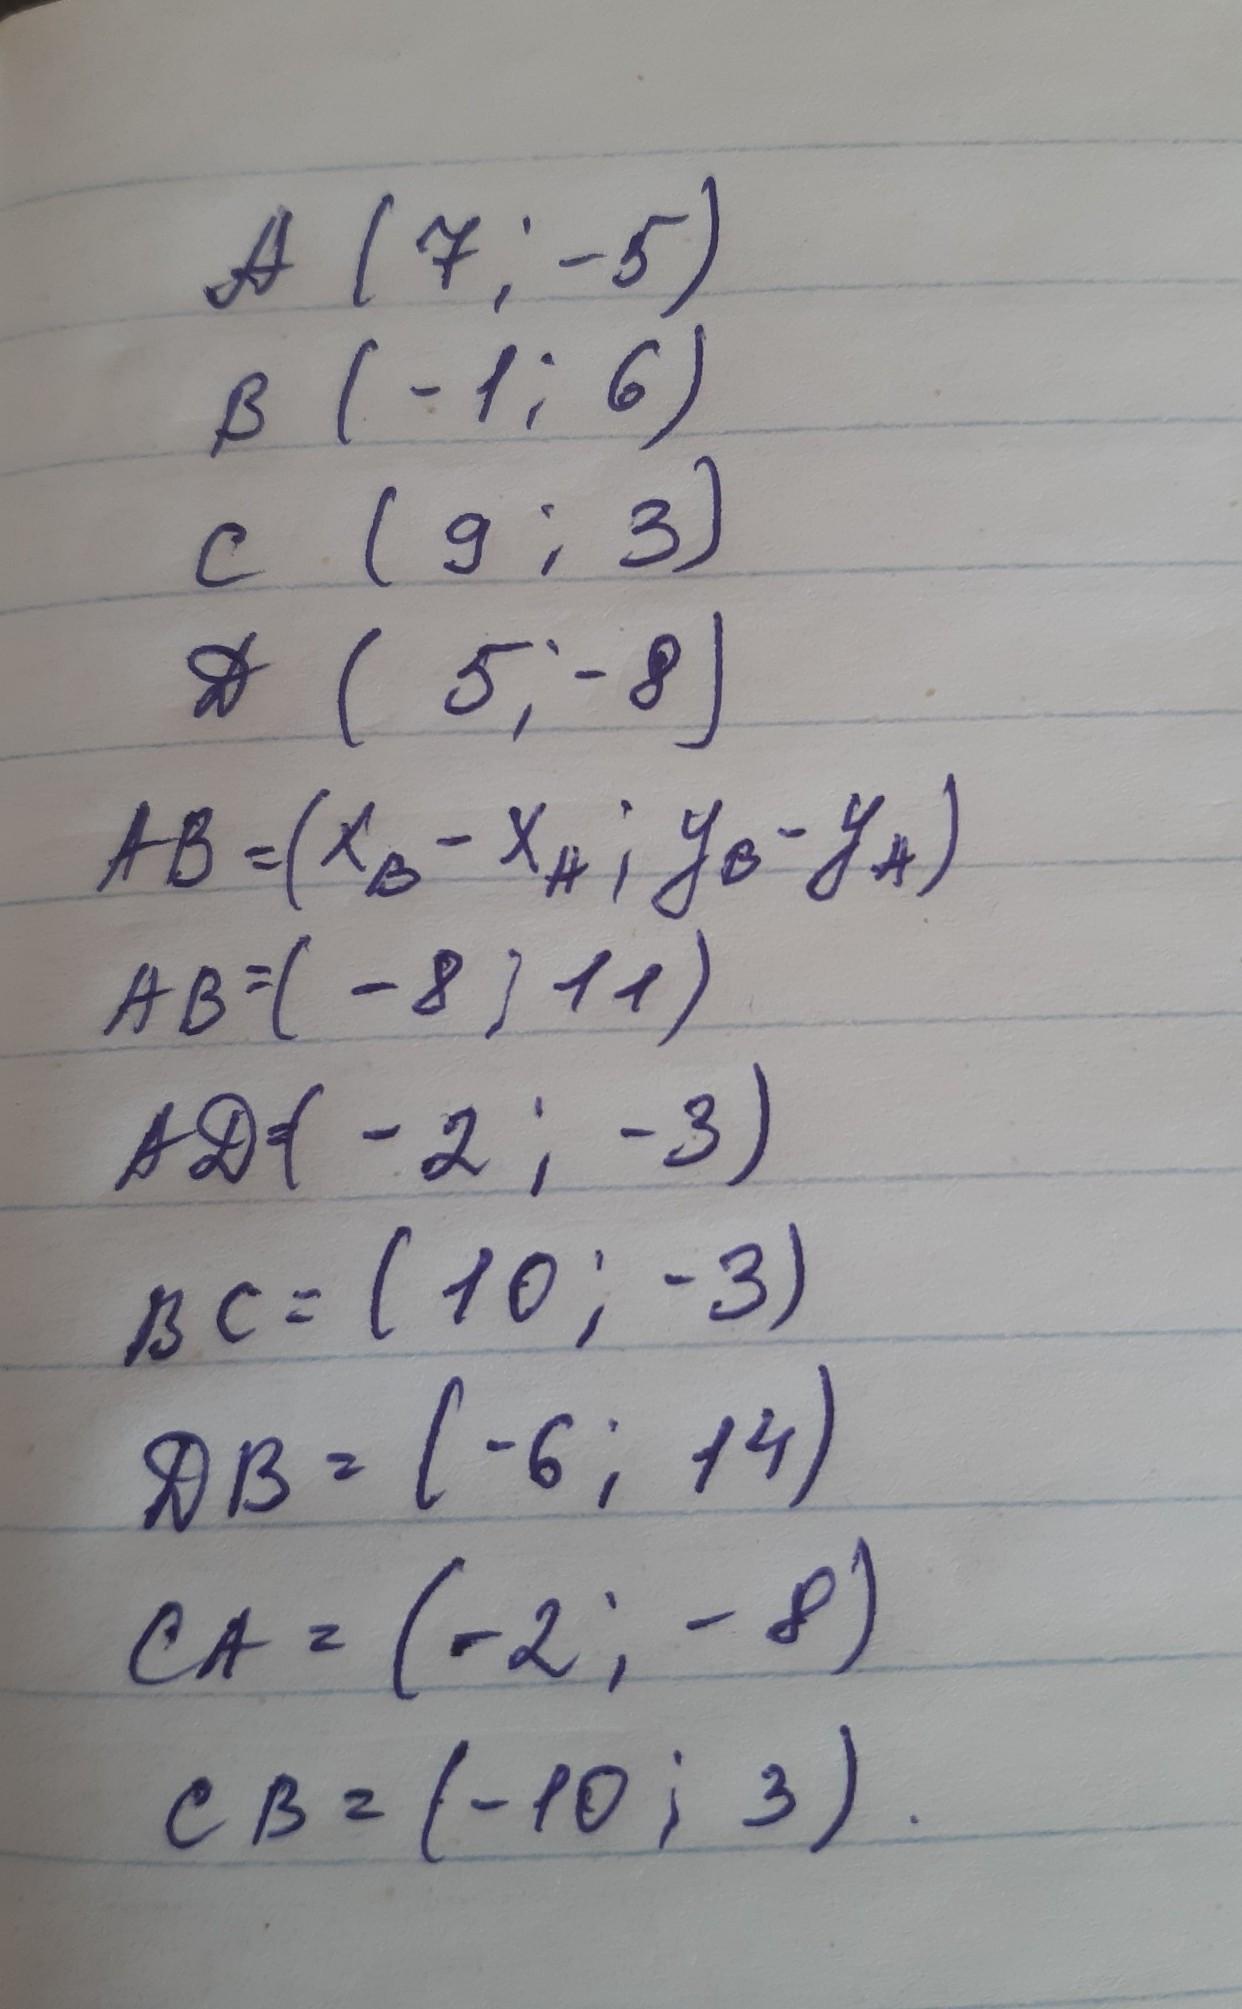 A (7; -5)
B (-1; 6)
C (9; 3)
D (5; -8)
AB=(x_B - x_A; y_B - y_A)
AB=(-8; 11)
AD=(-2; -3)
BC=(10; -3)
DB=(-6; 14)
CA=(-2; -8)
CB=(-10; 3).